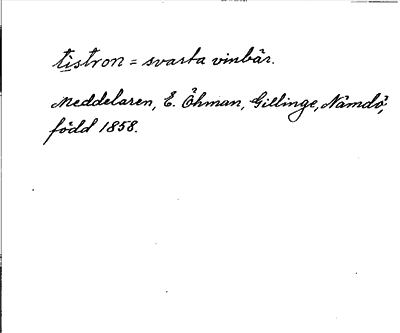 tistron = svarta vinbär.
Meddelaren, E. Öhman, Gillinge, Nämdö,
född 1858.